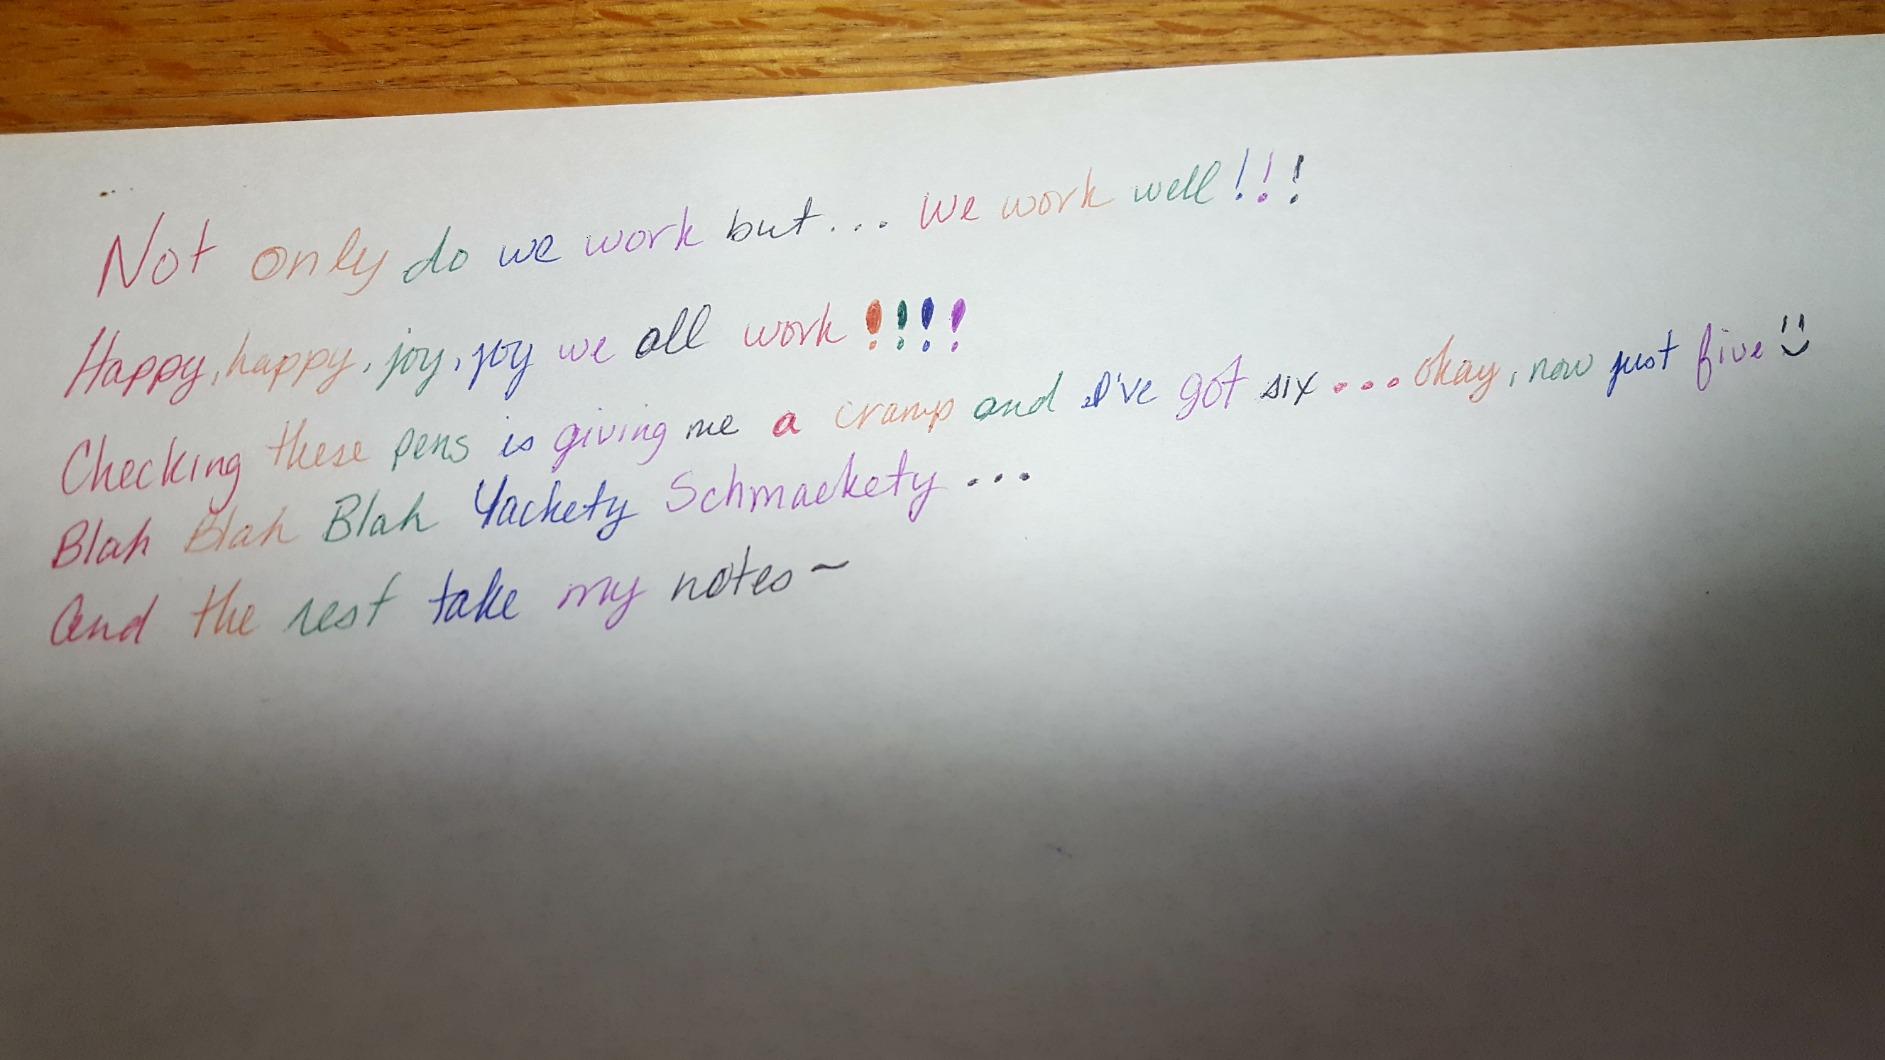 Not only do we work but... We work well!!!
Happy, happy, joy, joy we all work!!!!
Checking these pens is giving me a cramp and I've got six... okay, now just five
Blah Blah Blah Yackety Schmackety...
And the rest take my notes~